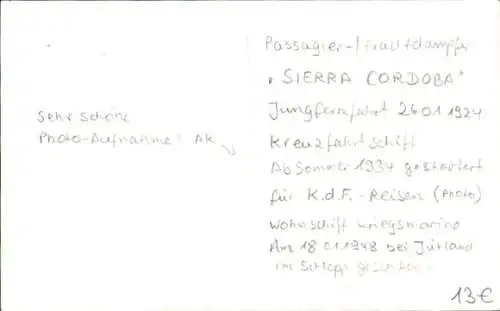 Passagier-/Frachtdampfer
"SIERRA CORDOBA"
Jungfernfahrt 26 01 1924
Kreuzfahrtschiff
Ab Sommer 1934 gechartert
für K.d.F.-Reisen (Photo)
Wohnschiff Kriegsmarine
Am 18 01 1948 bei Jütland
im Schlepp gesunken
Sehr schöne
Photo-Aufnahme! AK
13€